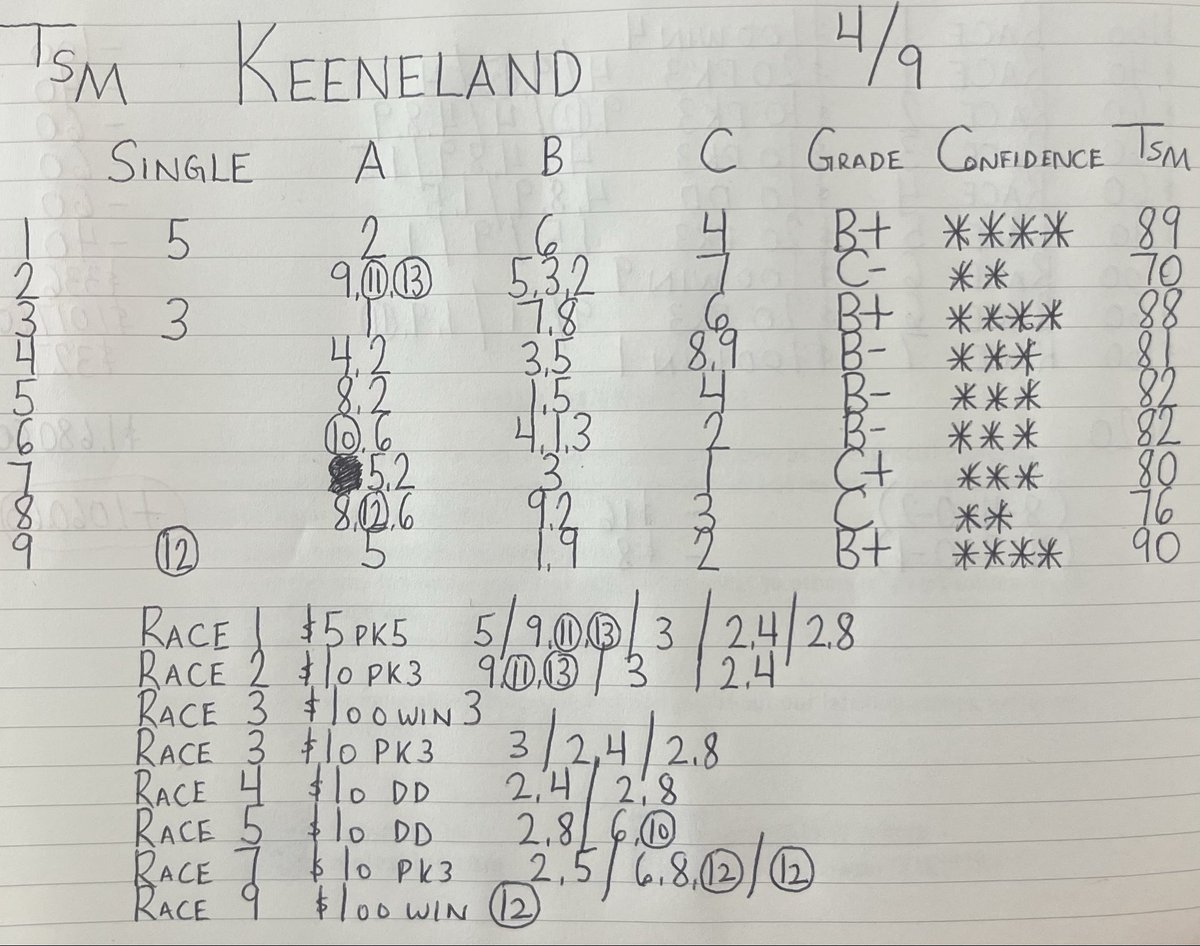 TSM KEENELAND 4/9
SINGLE A B C GRADE CONFIDENCE TSM
1 5 2 6 4 B+ **** 89
2 9,11,13 5,3,2 7 C- ** 70
3 3 1 7,8 6 B+ **** 88
4 4,2 3,5 8,9 B- *** 81
5 8,2 1,5 4 B- *** 82
6 10,6 4,1,3 2 B- *** 82
7 5,2 3 1 C+ *** 80
8 8,12,6 9,2 3 C ** 76
9 12 5 1,9 2 B+ **** 90
RACE 1 $5 PK5 5/9,11,13/3/2,4/2,8
RACE 2 $10 PK3 9,11,13/3/2,4
RACE 3 $100 WIN 3
RACE 3 $10 PK3 3/2,4/2,8
RACE 4 $10 DD 2,4/2,8
RACE 5 $10 DD 2,8/6,10
RACE 7 $10 PK3 2,5/6,8,12/12
RACE 9 $100 WIN 12